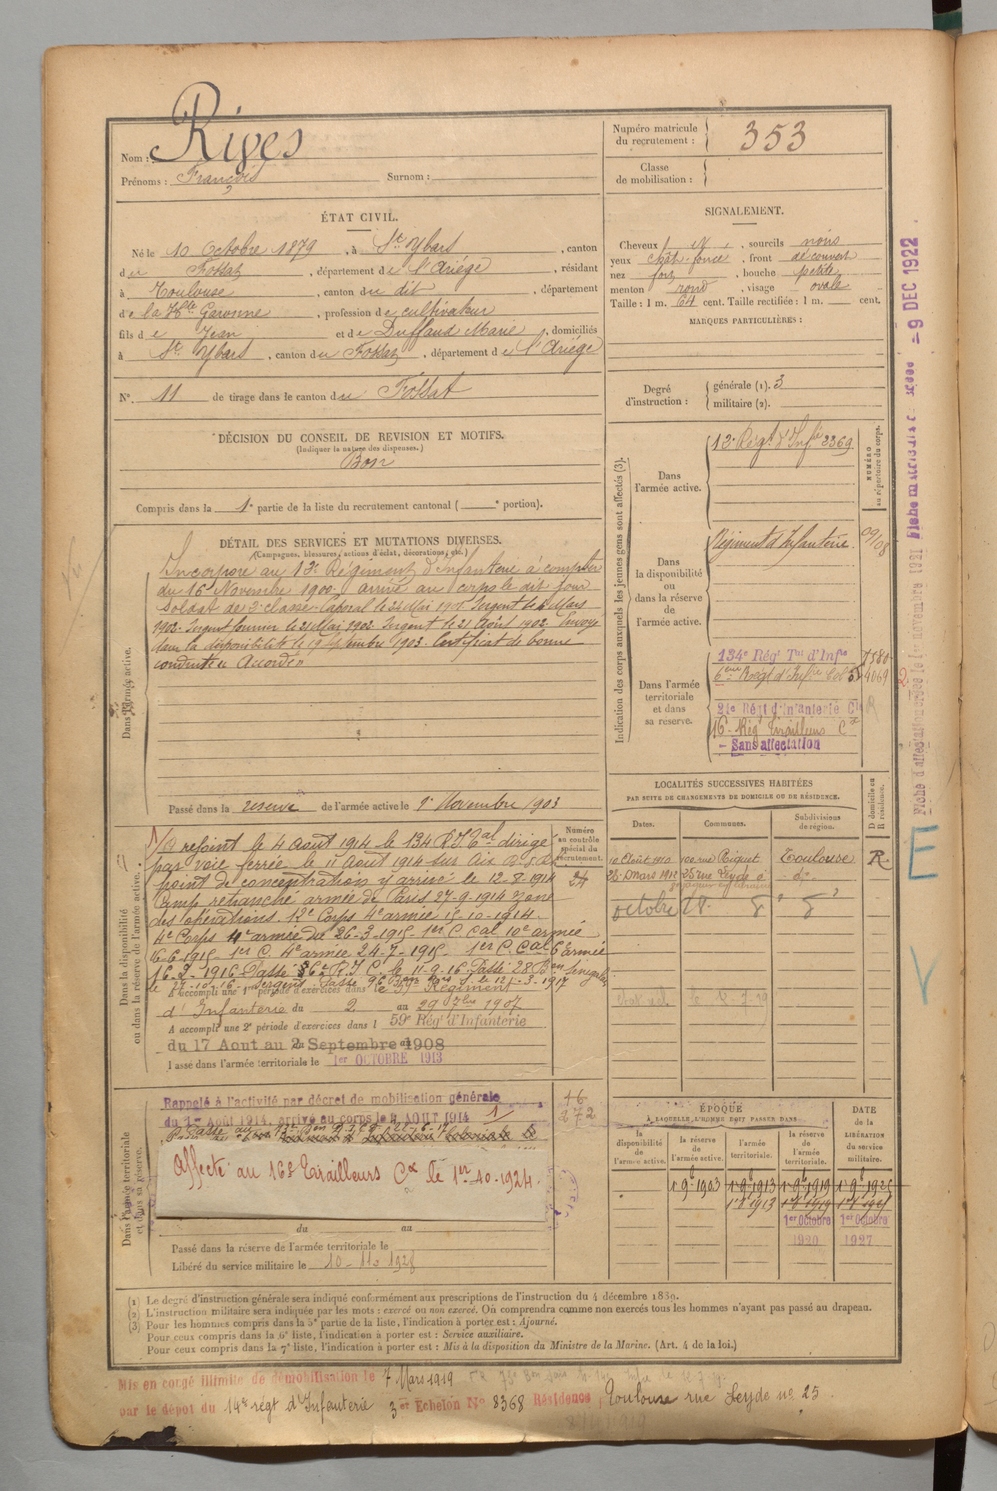 Nom : Rives
Prénoms : François Surnom :
Numéro matricule du recrutement : 353
Classe de mobilisation :
ÉTAT CIVIL.
Né le 10 Octobre 1879, à St Ybars, canton
du Fossat, département de l'Ariège, résidant
à Toulouse, canton du dit, département
de la Hte Garonne, profession de cultivateur
fils de Jean et de Duffaud Marie, domiciliés
à St Ybars, canton du Fossat, département de l'Ariège
N°. 11 de tirage dans le canton du Fossat
SIGNALEMENT.
Cheveux, sourcils noirs
yeux chât-foncé, front découvert
nez fort, bouche petite
menton rond, visage ovale
Taille : 1 m. 64 cent. Taille rectifiée : 1 m. cent.
MARQUES PARTICULIÈRES :
Degré d'instruction : générale (1). 3
militaire (2).
DÉCISION DU CONSEIL DE REVISION ET MOTIFS.
(Indiquer la nature des dispenses.)
Bon
Compris dans la 1e partie de la liste du recrutement cantonal ( e portion).
DÉTAIL DES SERVICES ET MUTATIONS DIVERSES.
(Campagnes, blessures, actions d'éclat, décorations, etc.)
Dans l'armée active.
Incorporé au 13e Régiment d'infanterie à compter
du 16 Novembre 1900 arrivé au corps le dit jour
Soldat de 2e classe. Caporal le Mai 1901 Sergent le Mars
1902. Sergent fourrier le 21 Mai 1902. Sergent le 21 Août 1902. Envoyé
dans la disponibilité le 19 Septembre 1903. Certificat de bonne
conduite « Accordé »
Passé dans la réserve de l'armée active le 1er Novembre 1903
Indication des corps auxquels les jeunes gens sont affectés (3).
NUMÉRO au répertoire du corps.
Dans l'armée active.
13e Régt d'Infie 2369
Dans la disponibilité ou dans la réserve de l'armée active.
Régiment d'Infanterie
Dans l'armée territoriale et dans sa réserve.
134e Régt Tal d'Infie
6eme Régt d'Infie Col 4069
21e Régt d'Infanterie Cle
16e Rég Tirailleurs Cx
- Sans affectation
LOCALITÉS SUCCESSIVES HABITÉES
PAR SUITE DE CHANGEMENTS DE DOMICILE OU DE RÉSIDENCE.
Dates. Communes. Subdivisions de région. D domicile ou R résidence.
10 Août 1910 rue Riquet Toulouse R.
28 Mars 1912 25 rue Leyde d° d°
octobre 18
Dans la disponibilité ou dans la réserve de l'armée active.
Numéro au contrôle spécial du recrutement.
24
A rejoint le 4 Août 1914 le 134 R.I.Tal dirigé
par voie ferrée le 11 Août 1914 sur Aix
point de concentration y arrive le 12-8-1914
Camp retranché armée de Paris 27-9-1914 zone
des opérations. 12e Corps 4e armée 15-10-1914.
4e Corps 4e armée du 26-3-1915 1er C Cal 10e armée
16-6-1915. 1er C. 4e armée 24-7-1915. 1er C. Cal 6e armée
16-2-1916. Passé 6e R.I.C. le 11-9-16 Passé 28 Bon Sénégalais
A accompli une 1re période d'exercices dans le Régiment
d'Infanterie du 2 au 29 1907
A accompli une 2e période d'exercices dans le 59e Régt d'Infanterie
du 17 Aout au 2 Septembre 1908
Passé dans l'armée territoriale le 1er OCTOBRE 1913
Dans l'armée territoriale et dans sa réserve.
Rappelé à l'activité par décret de mobilisation générale
du 1er Août 1914, arrivé au corps le 4 AOUT 1914
Affecté au 16e Tirailleurs Cx le 1er-10-1924.
du au
Passé dans la réserve de l'armée territoriale le
Libéré du service militaire le 10-11-1928
ÉPOQUE
À LAQUELLE L'HOMME DOIT PASSER DANS
la disponibilité de l'armée active. la réserve de l'armée active. l'armée territoriale. la réserve de l'armée territoriale.
DATE de la LIBÉRATION du service militaire.
1-9-1903 1-9-1913 1-9-1919 1-9-1925
1er Octobre 1920 1er Octobre 1927
(1) Le degré d'instruction générale sera indiqué conformément aux prescriptions de l'instruction du 4 décembre 1889.
(2) L'instruction militaire sera indiquée par les mots : exercé ou non exercé. On comprendra comme non exercés tous les hommes n'ayant pas passé au drapeau.
(3) Pour les hommes compris dans la 5e partie de la liste, l'indication à porter est : Ajourné.
Pour ceux compris dans la 6e liste, l'indication à porter est : Service auxiliaire.
Pour ceux compris dans la 7e liste, l'indication à porter est : Mis à la disposition du Ministre de la Marine. (Art. 4 de la loi.)
Mis en congé illimité de démobilisation le 7 Mars 1919
par le dépôt du 14e régt d'Infanterie 3er Echelon N° 8368 Résidence Toulouse rue Leyde n° 25
Fiche d'affectation créée le 1er novembre 1921 Fiche matricule - 9 DEC 1922
E
V